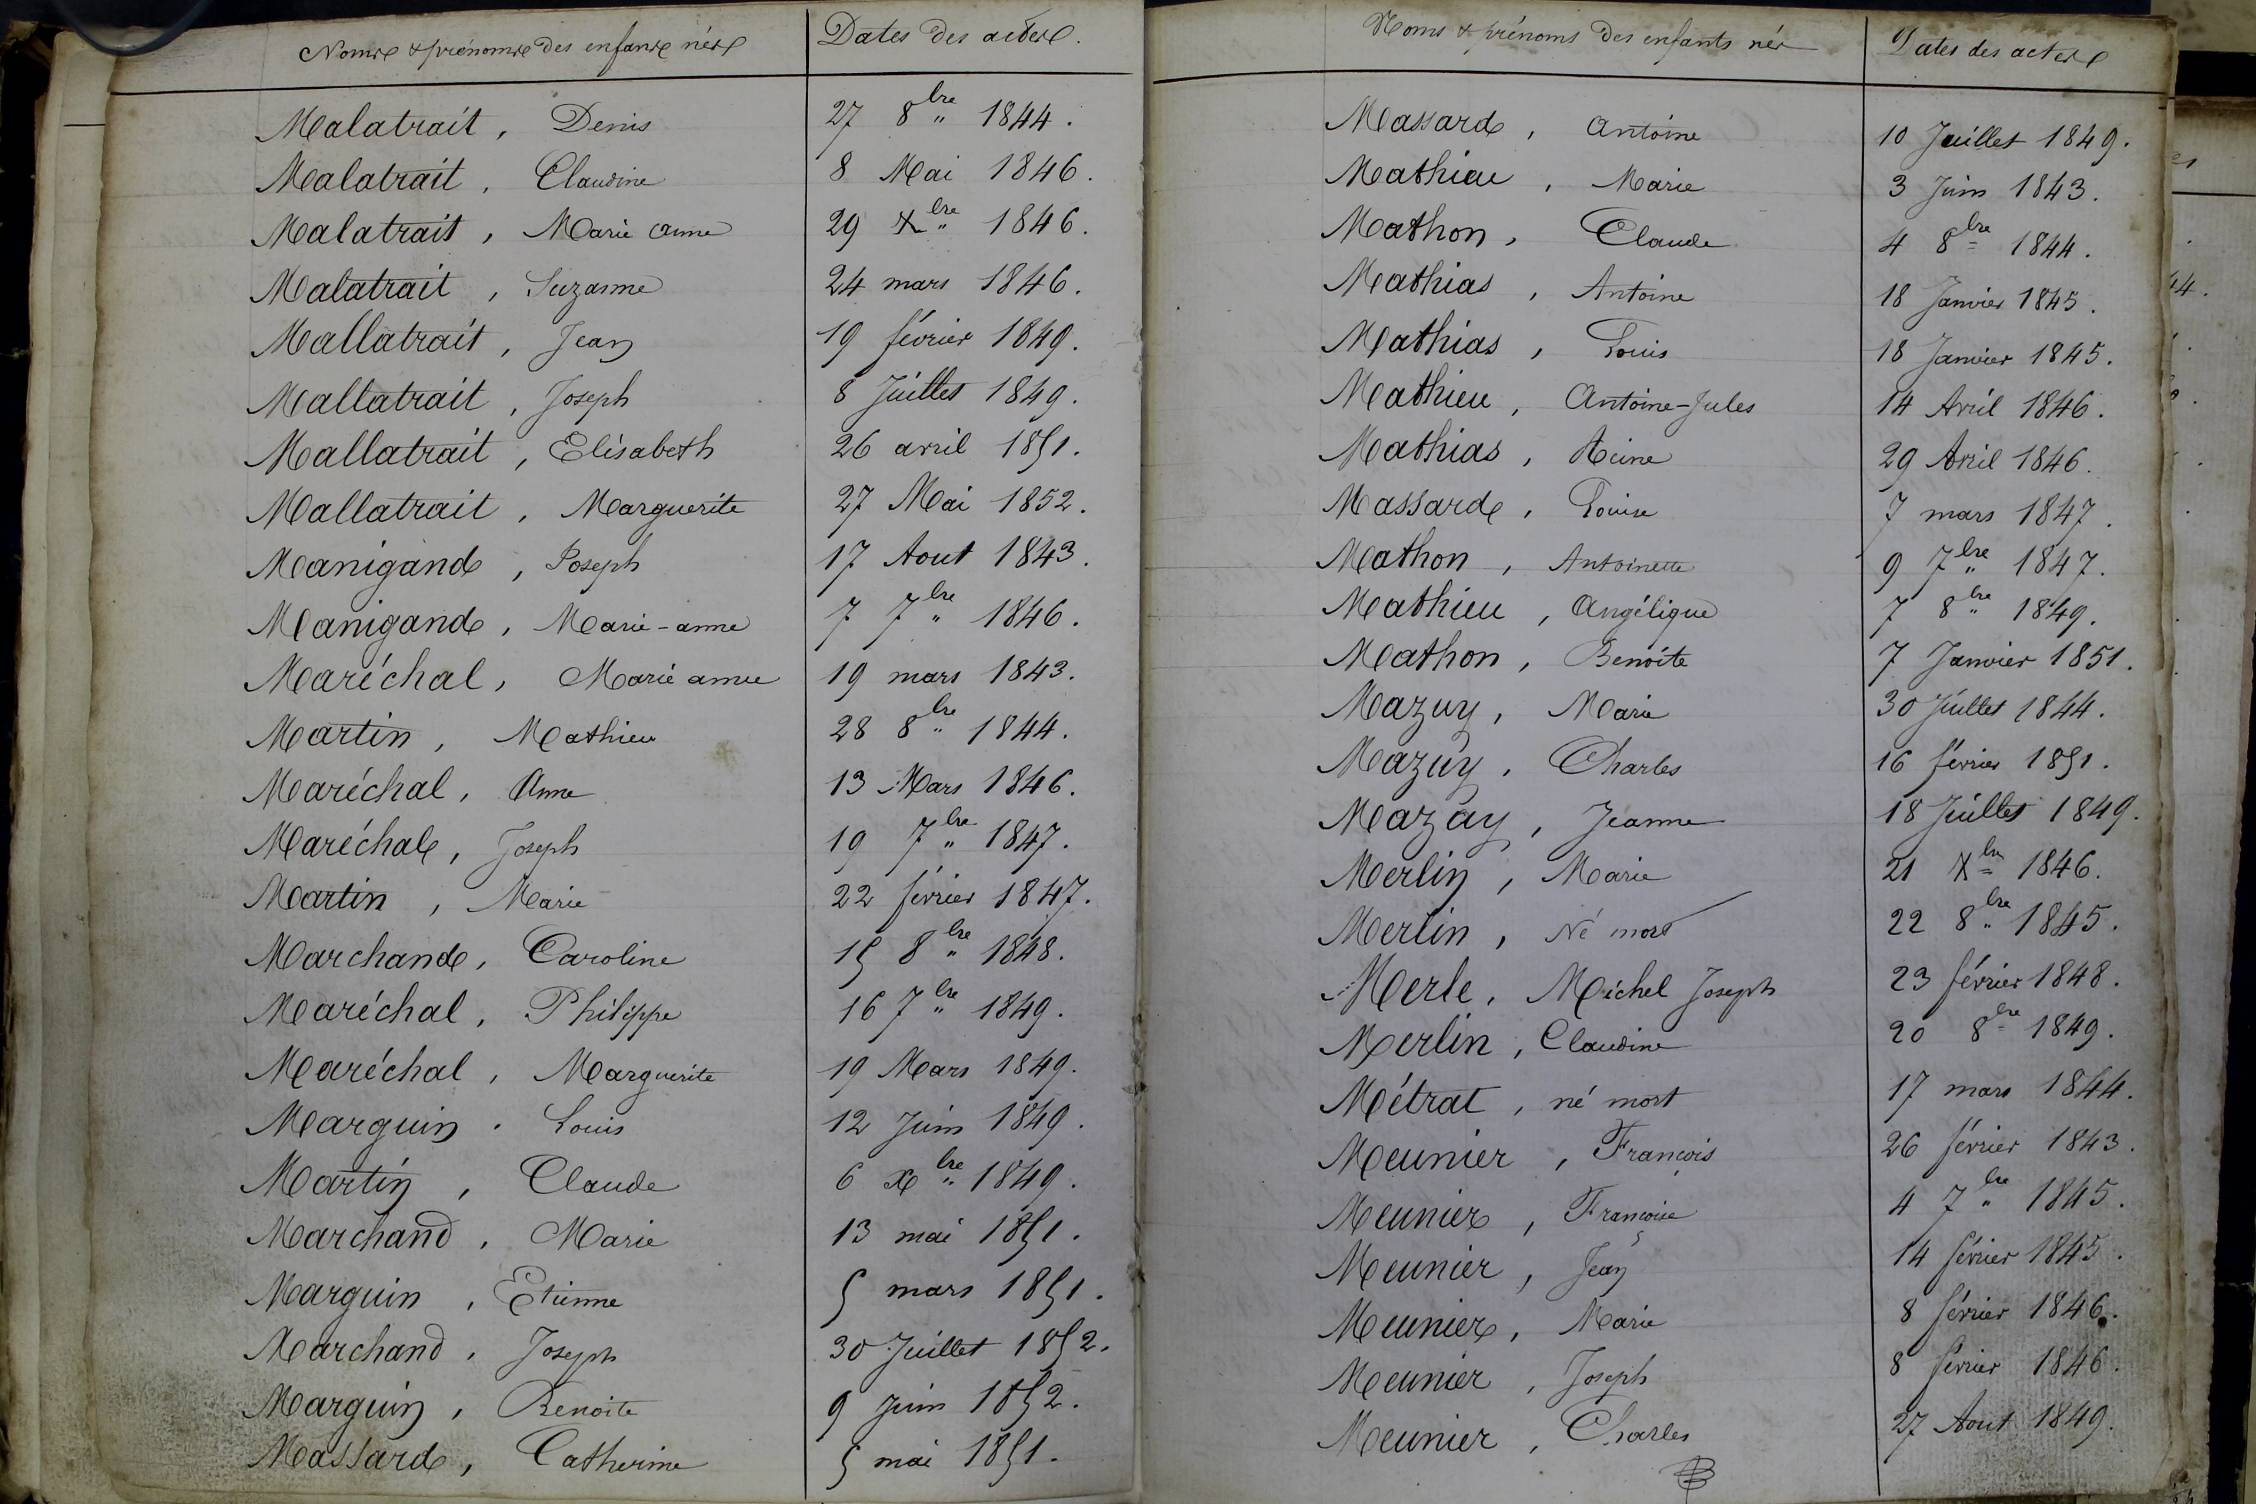 Noms & prénoms des enfants nés Dates des actes.
Malatrait, Denis 27 8bre 1844.
Malatrait, Claudine 8 Mai 1846.
Malatrait, Marie anne 29 Xbre 1846.
Malatrait, Suzanne 24 mars 1846.
Mallatrait, Jean 19 février 1849.
Mallatrait, Joseph 8 Juillet 1849.
Mallatrait, Elisabeth 26 avril 1851.
Mallatrait, Marguerite 27 Mai 1852.
Manigand, Joseph 17 Aout 1843.
Manigand, Marie-anne 7 7bre 1846.
Maréchal, Marie anne 19 mars 1843.
Martin, Mathieu 28 8bre 1844.
Maréchal, Anne 13 Mars 1846.
Maréchal, Joseph 19 7bre 1847.
Martin, Marie 22 février 1847.
Marchand, Caroline 15 8bre 1848.
Maréchal, Philippe 16 7bre 1849.
Maréchal, Marguerite 19 Mars 1849.
Marguin. Louis 12 Juin 1849.
Martin, Claude 6 Xbre 1849.
Marchand, Marie 13 mai 1851.
Marguin, Etienne 5 mars 1851.
Marchand, Joseph 30 Juillet 1852.
Marguin, Benoite 9 Juin 1852.
Massard, Catherine 5 mai 1851.
Noms & prénoms des enfants nés Dates des actes
Massard, Antoine 10 Juillet 1849.
Mathieu, Marie 3 Juin 1843.
Mathon, Claude 4 8bre 1844.
Mathias, Antoine 18 Janvier 1845.
Mathias, Louis 18 Janvier 1845.
Mathieu, Antoine-Jules 14 Avril 1846.
Mathias, Reine 29 Avril 1846.
Massard, Louise 7 mars 1847.
Mathon, Antoinette 9 7bre 1847.
Mathieu, Angélique 7 8bre 1849.
Mathon, Benoite 7 Janvier 1851.
Mazuy, Marie 30 Juillet 1844.
Mazuy, Charles 16 février 1851.
Mazuy, Jeanne 18 Juillet 1849.
Merlin, Marie 21 Xbre 1846.
Merlin, Né mort 22 8bre 1845.
Merle, Michel Joseph 23 février 1848.
Merlin, Claudine 20 8bre 1849.
Métrat, né mort 17 mars 1844.
Meunier, François 26 février 1843.
Meunier, Françoise 4 7bre 1845.
Meunier, Jean 14 février 1845.
Meunier, Marie 8 février 1846.
Meunier, Joseph 8 février 1846.
Meunier, Charles 27 Aout 1849.